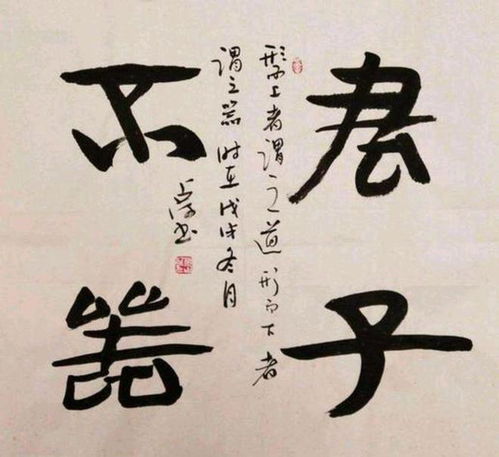 君子
不器
形而上者谓之道形而下者
谓之器 时在戊戌冬月
书